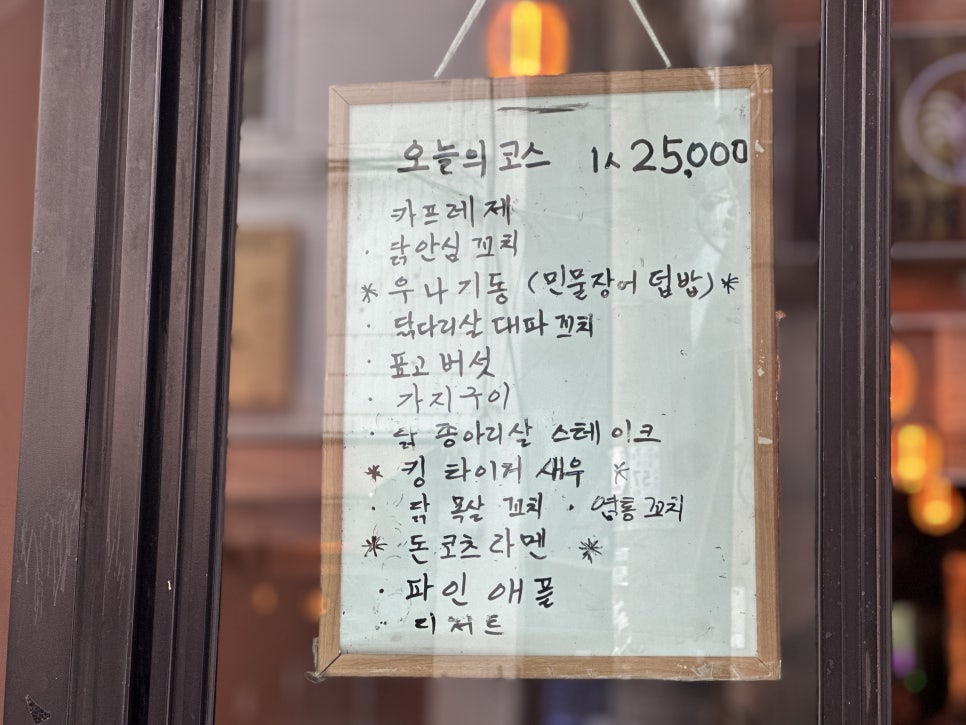 오늘의 코스 1人 25,000
카프레제
· 닭안심 꼬치
* 우나기동 (민물장어 덥밥) *
· 닭다리살 대파 꼬치
· 표고버섯
· 가지구이
· 닭 종아리살 스테이크
* 킹 타이거 새우 *
· 닭 목살 꼬치 · 염통꼬치
* 돈코츠라멘 *
· 파인애플
·· 디저트